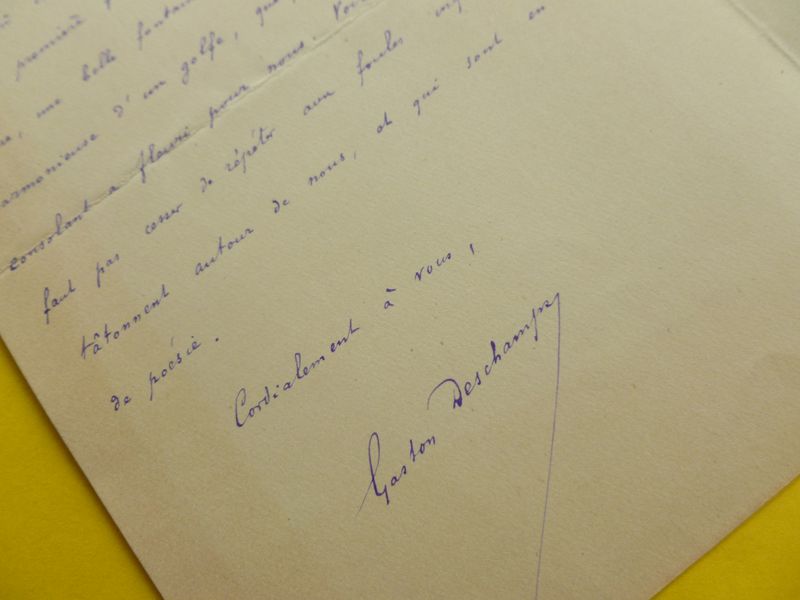 première
, une belle fontaine
armonieuse d'un golfe, que
consolant a fleuri pour nous. Vou
faut pas cesser de répéter aux foules
tâtonnent autour de nous, et qui sont en
de poésie.
Cordialement à vous,
Gaston Deschamps